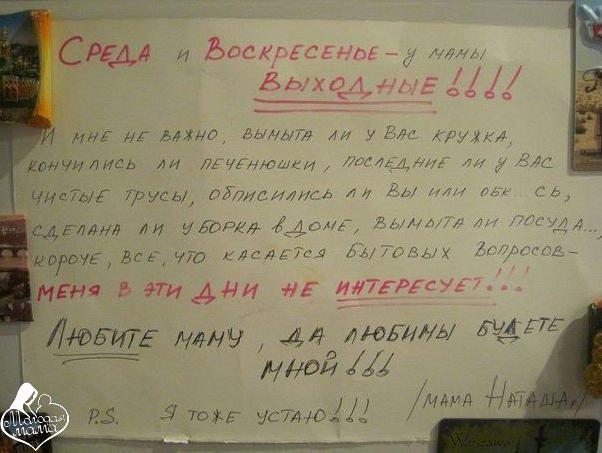 Среда и Воскресенье – у мамы
выходные!!!!
И мне не важно, вымыта ли у вас кружка,
кончились ли печенюшки, последние ли у вас
чистые трусы, обписились ли вы или обк...сь,
сделана ли уборка в доме, вымыта ли посуда...,
короче, все, что касается бытовых вопросов –
меня в эти дни не интересует!!!
Любите маму, да любимы будете
мной!!!
/мама Наташа/
P.S. Я тоже устаю!!!
Молодая
мама
Warszawa